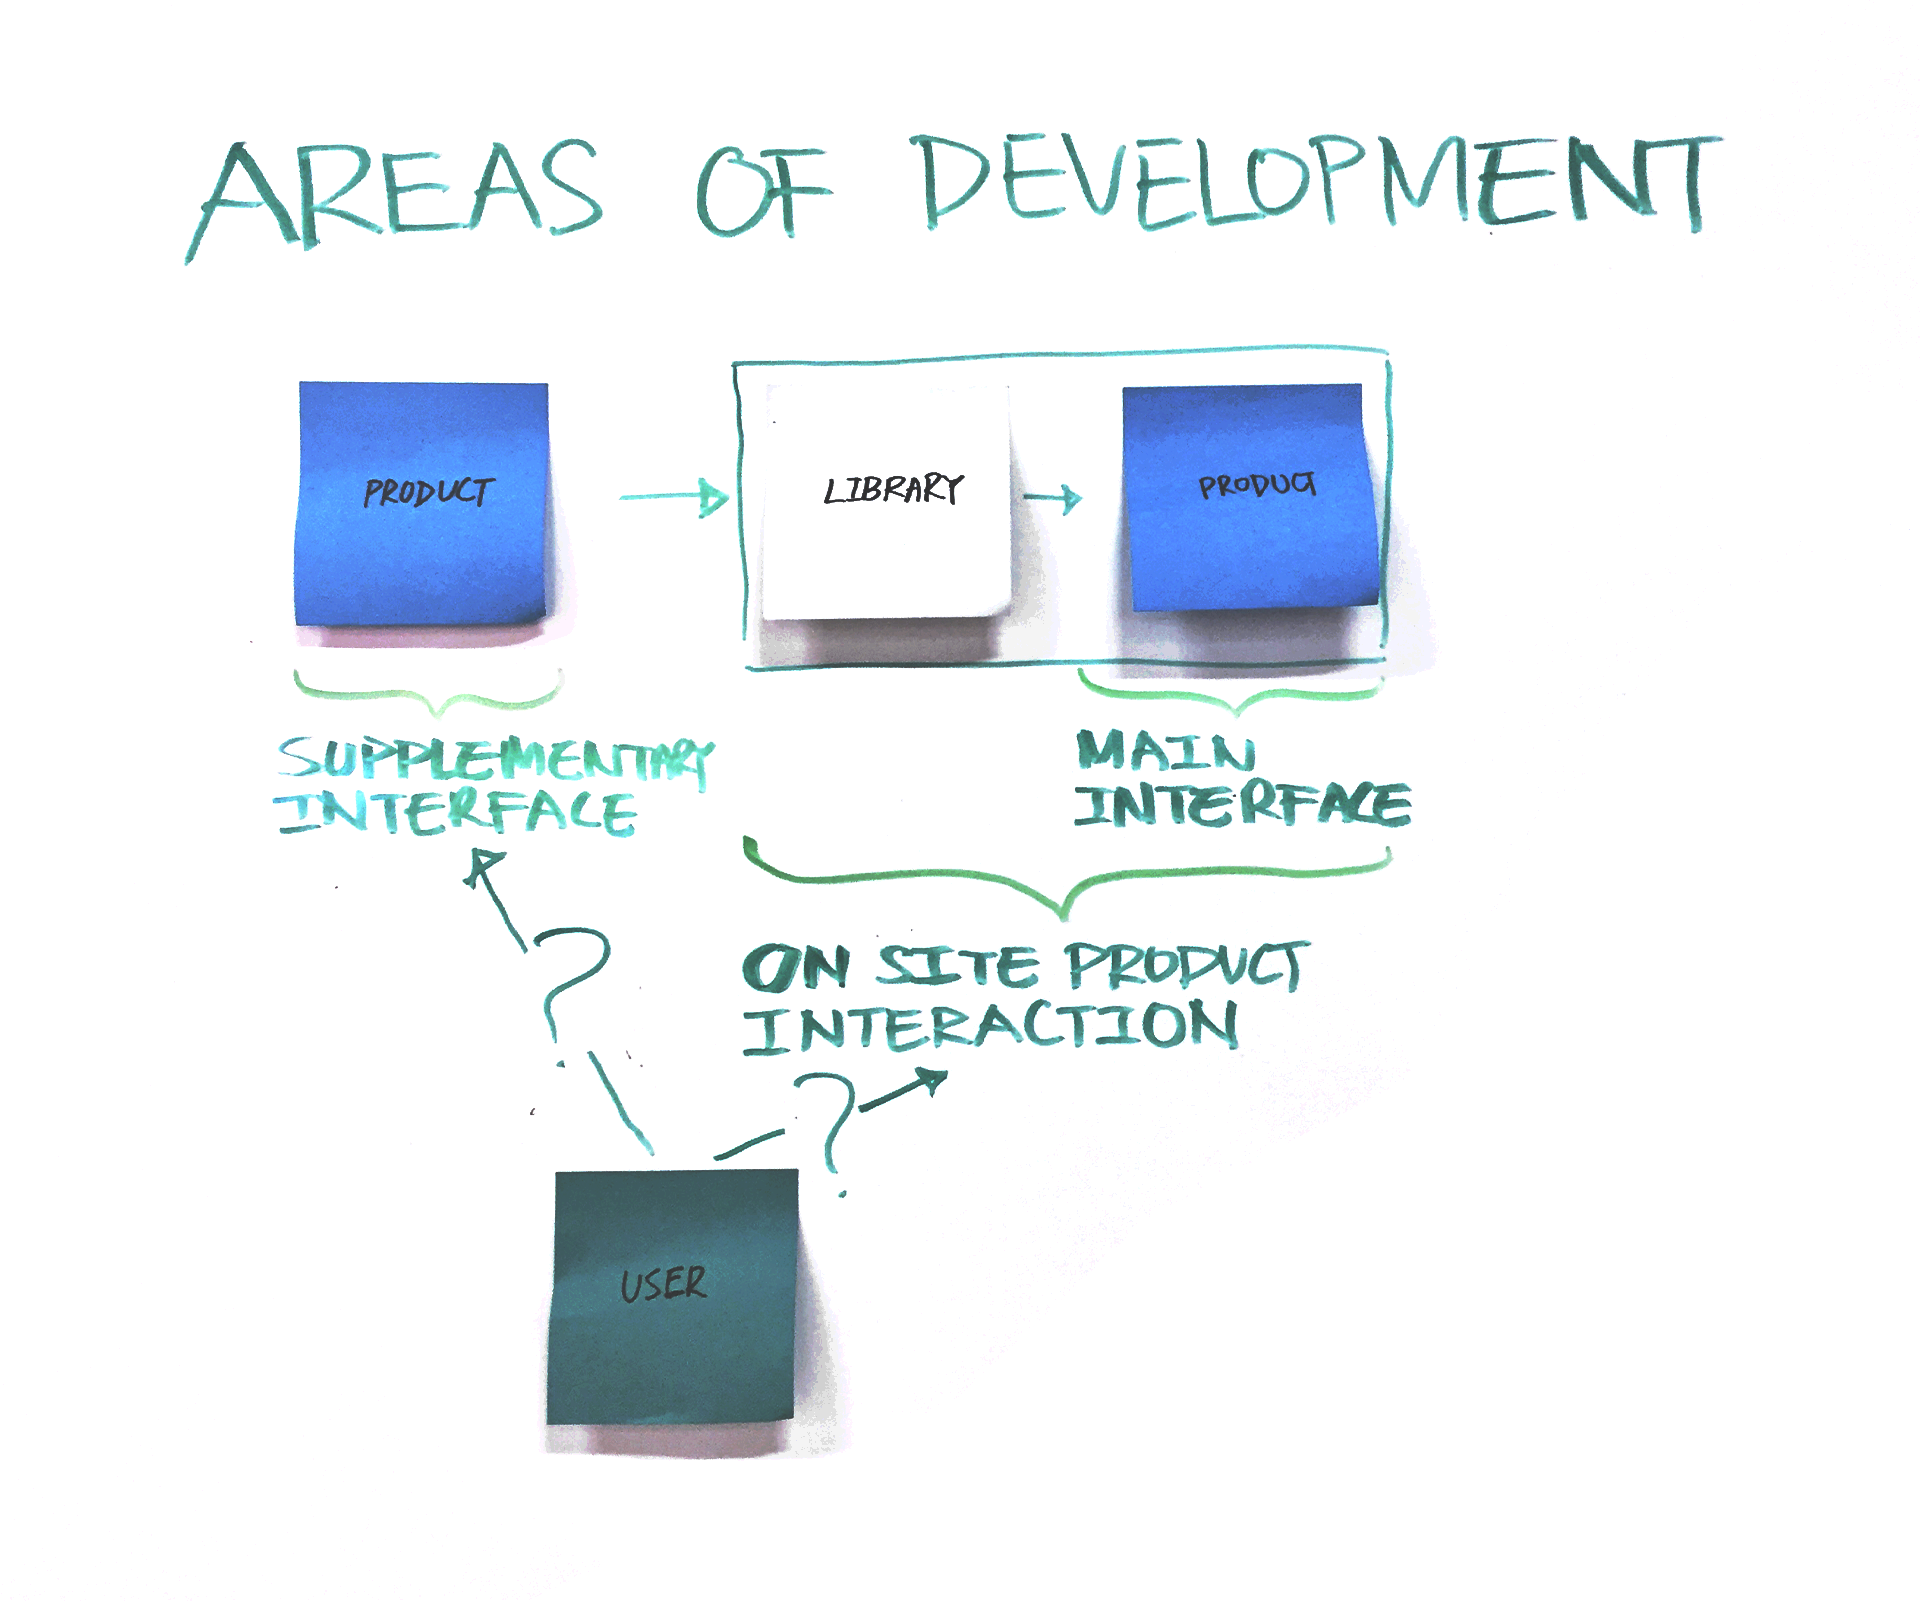 AREAS OF DEVELOPMENT
PRODUCT
LIBRARY
PRODUCT
SUPPLEMENTARY
INTERFACE
MAIN
INTERFACE
ON SITE PRODUCT
INTERACTION
?
?
USER